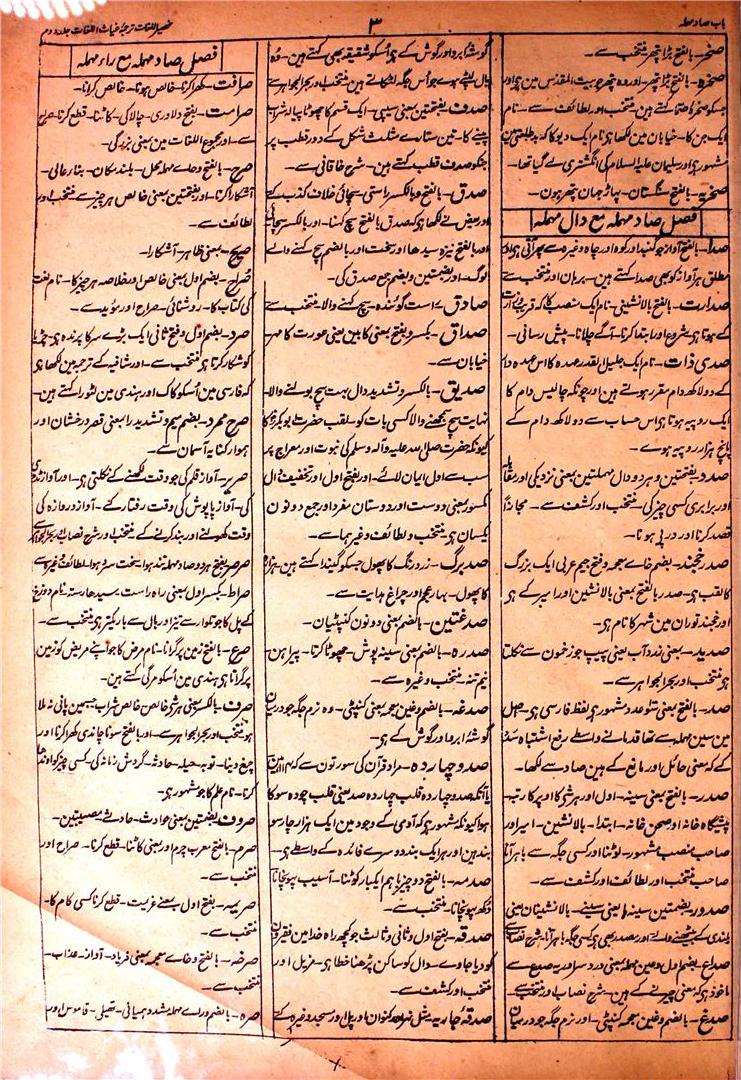 باب صاد مہملہ
۳
فصیل اللغات ترجمۂ غیاث اللغات جلد دوم
صخر۔ بالفتح بڑا پتھر منتخب سے۔
صخرہ۔ بالفتح بڑا پتھر۔ اور وہ پتھر جو بیت المقدس مین ہی اور
جسکو صخرۂ صما کہتے ہین۔ منتخب اور لطائف سے۔ نام
ایک جن کا۔ خیابان مین لکھا ہی نام ایک دیو کا کہ
مشہور ہی اور سلیمان علیہ السلام کی انگشتری لے گیا تھا۔
صخریہ۔ بالفتح سنگستان۔ پہاڑ جہان پتھر ہون۔
فصل صاد مہملہ مع دال مہملہ
صدا۔ بالفتح آواز جو گنبد اور کوہ اور چاہ وغیرہ سے پھر آتی ہی اور
مطلق ہر آواز کو بھی صدا کہتے ہین۔ برہان اور منتخب سے
صدارت۔ بالفتح بالا نشینی۔ نام ایک منصب کا کہ
کے ہوتا ہی شروع اور ابتدا کرنا۔ آگے چلانا۔ پیش رسانی۔
صدی ذات۔ نام ایک جلیل القدر عہدہ کا اس عہدہ دار
کے دو لاکھ دام مقرر ہوتے ہین اور چونکہ چالیس دام کا
ایک روپیہ ہوتا ہی اس حساب سے دو لاکھ دام کے
پانچ ہزار روپیہ ہوے۔
صدد۔ بفتحتین و ہر دو دال مہملتین بمعنی نزدیکی اور مقابل
اور برابری کسی چیز کی۔ منتخب اور کشف سے۔ مجازاً
قصد کرنا اور در پے ہونا۔
صدر خجند۔ بضم خاے معجمہ و فتح جیم عربی ایک بزرگ
کا لقب ہی۔ صدر بالفتح بمعنی بالا نشین اور امیر کے ہی
اور خجند توران مین شہر کا نام ہی۔
صدید۔ بمعنی زرد آب یعنی پیپ جو زخمون سے نکلتا
ہی منتخب اور بحر الجواہر سے۔
صد۔ بالفتح بمعنی سو عدد مشہور ہی لفظ فارسی ہی۔ اصل
مین سین مہملہ سے تھا قدما نے واسطے رفع اشتباہ سد
کے کہ بمعنی حائل اور مانع کے ہین صاد سے لکھا۔
صدر۔ بالفتح بمعنی سینہ۔ اول اور ہر شی کا اوپر کا رتبہ۔
پیشگاہ خانہ اور صحن خانہ۔ ابتدا۔ بالا نشین۔ امیر اور
صاحب منصب مشہور۔ لوٹنا اور کسی جگہ سے باہر آنا
صاحب منتخب اور لطائف اور کشف سے۔
صدور۔ بضمتین سینہ ہا یعنی سینے۔ بالا نشینان یعنی
بلندی کے بیٹھنے والے اور مصدر بھی ہی کسی جگہ باہر آنا۔ شرح نصاب سے
صداع۔ بضم اول و عین مہملہ بمعنی درد سر اور یہ صدع سے
ماخوذ ہی کہ بمعنی چیرنے کے ہین۔ شرح نصاب اور منتخب سے۔
صدغ۔ بالضم و غین معجمہ کنپٹی۔ اور نرم جگہ جو درمیان
گوشۂ ابرو اور گوش کے ہی اسکو شقیقہ بھی کہتے ہین۔ وہ
بال لٹکے ہوے جو اس جگہ لٹکاتے ہین۔ منتخب اور بحر الجواہر سے
صدف۔ بفتحتین بمعنی سیپی۔ ایک قسم کا چھوٹا پیالہ شراب
پینے کا۔ تین ستارے مثلث شکل کے دور قطب پر
جنکو صدف قطب کہتے ہین۔ شرح خاقانی سے۔
صدق۔ بالفتح و بالکسر راستی۔ سچائی خلاف کذب کے
اور بعض نے لکھا ہی کہ صدق بالفتح سچ کہنا۔ اور بالکسر سچائی
اور بالفتح نیزہ سیدھا اور سخت اور بالضم سچ کہنے والے
لوگ۔ اور بضمتین و بضم جمع صدق کی۔
صادق۔ راست گویندہ۔ سچ کہنے والا۔ منتخب سے
صداق۔ بکسر و بفتح بمعنی کابین یعنی عورت کا مہر
خیابان سے۔
صدیق۔ بالکسر و تشدید دال بہت سچ بولنے والا۔
نہایت سچ سمجھنے والا کسی بات کو۔ لقب حضرت ابوبکر کا
کیونکہ حضرت صلی اللہ علیہ وآلہ وسلم کی نبوت اور معراج پر
سب سے اول ایمان لائے۔ اور بفتح اول اور تخفیف دال
مکسور بمعنی دوست اور دوستان مفرد اور جمع دونون
یکسان ہی۔ منتخب و لطائف وغیرہما سے۔
صد برگ۔ زرد رنگ کا پھول جسکو گیندا کہتے ہین۔ ہزارہ
کا پھول۔ بہار عجم اور چراغ ہدایت سے۔
صدغتین۔ بالضم بمعنی دونون کنپٹیان۔
صدرہ۔ بالضم بمعنی سینہ پوش۔ چھوٹا کرتا۔ پیراہن
نیم تنہ۔ منتخب وغیرہ سے۔
صدغہ۔ بالضم و غین معجمہ بمعنی کنپٹی۔ وہ نرم جگہ جو درمیان
گوشۂ ابرو اور گوش کے ہی۔
صد و چاردہ۔ مراد قرآن کی سورتون سے
یا آنکہ صد و چاردہ قلب چاردہ صد یعنی قلب چودہ سو کا
ہوا کیونکہ مشہور ہی کہ آدمی کے وجود مین ایک ہزار چار سو
بند ہین اور ہر ایک بند دوسرے فائدہ کے واسطے ہی۔
صدمہ۔ بالفتح دو چیز باہم ایکبار کوٹنا۔ آسیب پہونچانا
دکھ پہونچانا۔ منتخب سے۔
صدقہ۔ بفتح اول و ثانی و ثالث جو کچھ راہ خدا مین فقیرون
کو دیا جاوے۔ دال کو ساکن پڑھنا خطا ہی۔ مزیل اور
منتخب اور کشف سے۔
صدقۂ جاریہ۔ مثل نہر اور کنوان اور پل اور مسجد وغیرہ کے
فصل صاد مہملہ مع راء مہملہ
صرافت۔ کھرا کرنا۔ خالص ہونا۔ خالص کرنا۔
صرامت۔ بفتح دلاوری۔ چالاکی۔ کاٹنا۔ قطع کرنا۔ صراح
سے۔ اور مجموع اللغات مین بمعنی بزرگی۔
صرح۔ بالفتح و حاے مہملہ محل۔ بلند مکان۔ بناء عالی۔
آشکارا کرنا۔ اور بفتحتین بمعنی خالص ہر چیز سے منتخب اور
لطائف سے۔
صریح۔ بمعنی ظاہر۔ آشکارا۔
صُراح۔ بضم اول بمعنی خالص اور خلاصہ ہر چیز کا۔ نام لغت
کی کتاب کا۔ روشنائی۔ صراح اور مؤید سے۔
صرد۔ بضم اول و فتح ثانی ایک بڑے سر کا پرندہ ہی۔ چڑیا
کو شکار کرتا ہی منتخب سے۔ اور شافیہ کے ترجمہ مین لکھا ہی
کہ فارسی مین اسکو کاک اور ہندی مین لٹورا کہتے ہین۔
صرح ممرد۔ بضم میم و تشدید را بمعنی قصر درخشان اور
ہموار کنایہ آسمان سے۔
صریر۔ آواز قلم کی جو وقت لکھنے کے نکلتی ہی۔ اور آواز ٹڈی
کی۔ آواز پاپوش کی وقت رفتار کے۔ آواز دروازہ کی
وقت کھولنے اور بند کرنے کے منتخب اور شرح نصاب اور بحر الجواہر سے
صرصر۔ بفتح ہر دو صاد مہملہ تند ہوا۔ سخت سرد ہوا۔ لطائف وغیرہ سے
صراط۔ بکسر اول بمعنی راہ راست۔ سیدھا رستہ۔ نام دوزخ
کے پل کا جو تلوار سے تیز اور بال سے باریکتر ہی منتخب سے۔
صرع۔ بالفتح زمین پر گرانا۔ نام مرض کا جو اپنے مریض کو زمین
پر گراتا ہی ہندی مین اسکو مرگی کہتے ہین۔
صرف۔ بالکسر یعنی ہر شی خالص۔ خالص شراب جسمین پانی نہ ملا
ہو۔ منتخب اور بحر الجواہر سے۔ اور بالفتح سونا چاندی کھرا کرنا اور
خرچ دینا۔ توبہ۔ حیلہ۔ حادثہ۔ گردش زمانہ کی۔ کسی چیز کو اوندھا
کرنا۔ نام علم کا جو مشہور ہی۔
صروف۔ بضمتین بمعنی حوادث۔ حادثے۔ مصیبتین۔
صرم۔ بالفتح معرب چرم اور بمعنی کاٹنا۔ قطع کرنا۔ صراح اور
منتخب سے۔
صریمہ۔ بفتح اول بمعنے عزیمت۔ قطع کرنا کسی کام کا۔
منتخب سے۔
صرخہ۔ بالفتح و خاے معجمہ بمعنی فریاد۔ آواز۔ عذاب۔
منتخب سے۔
صرہ۔ بالضم و راے مہملہ مشدد ہمیانی۔ تھیلی۔ قاموس اور